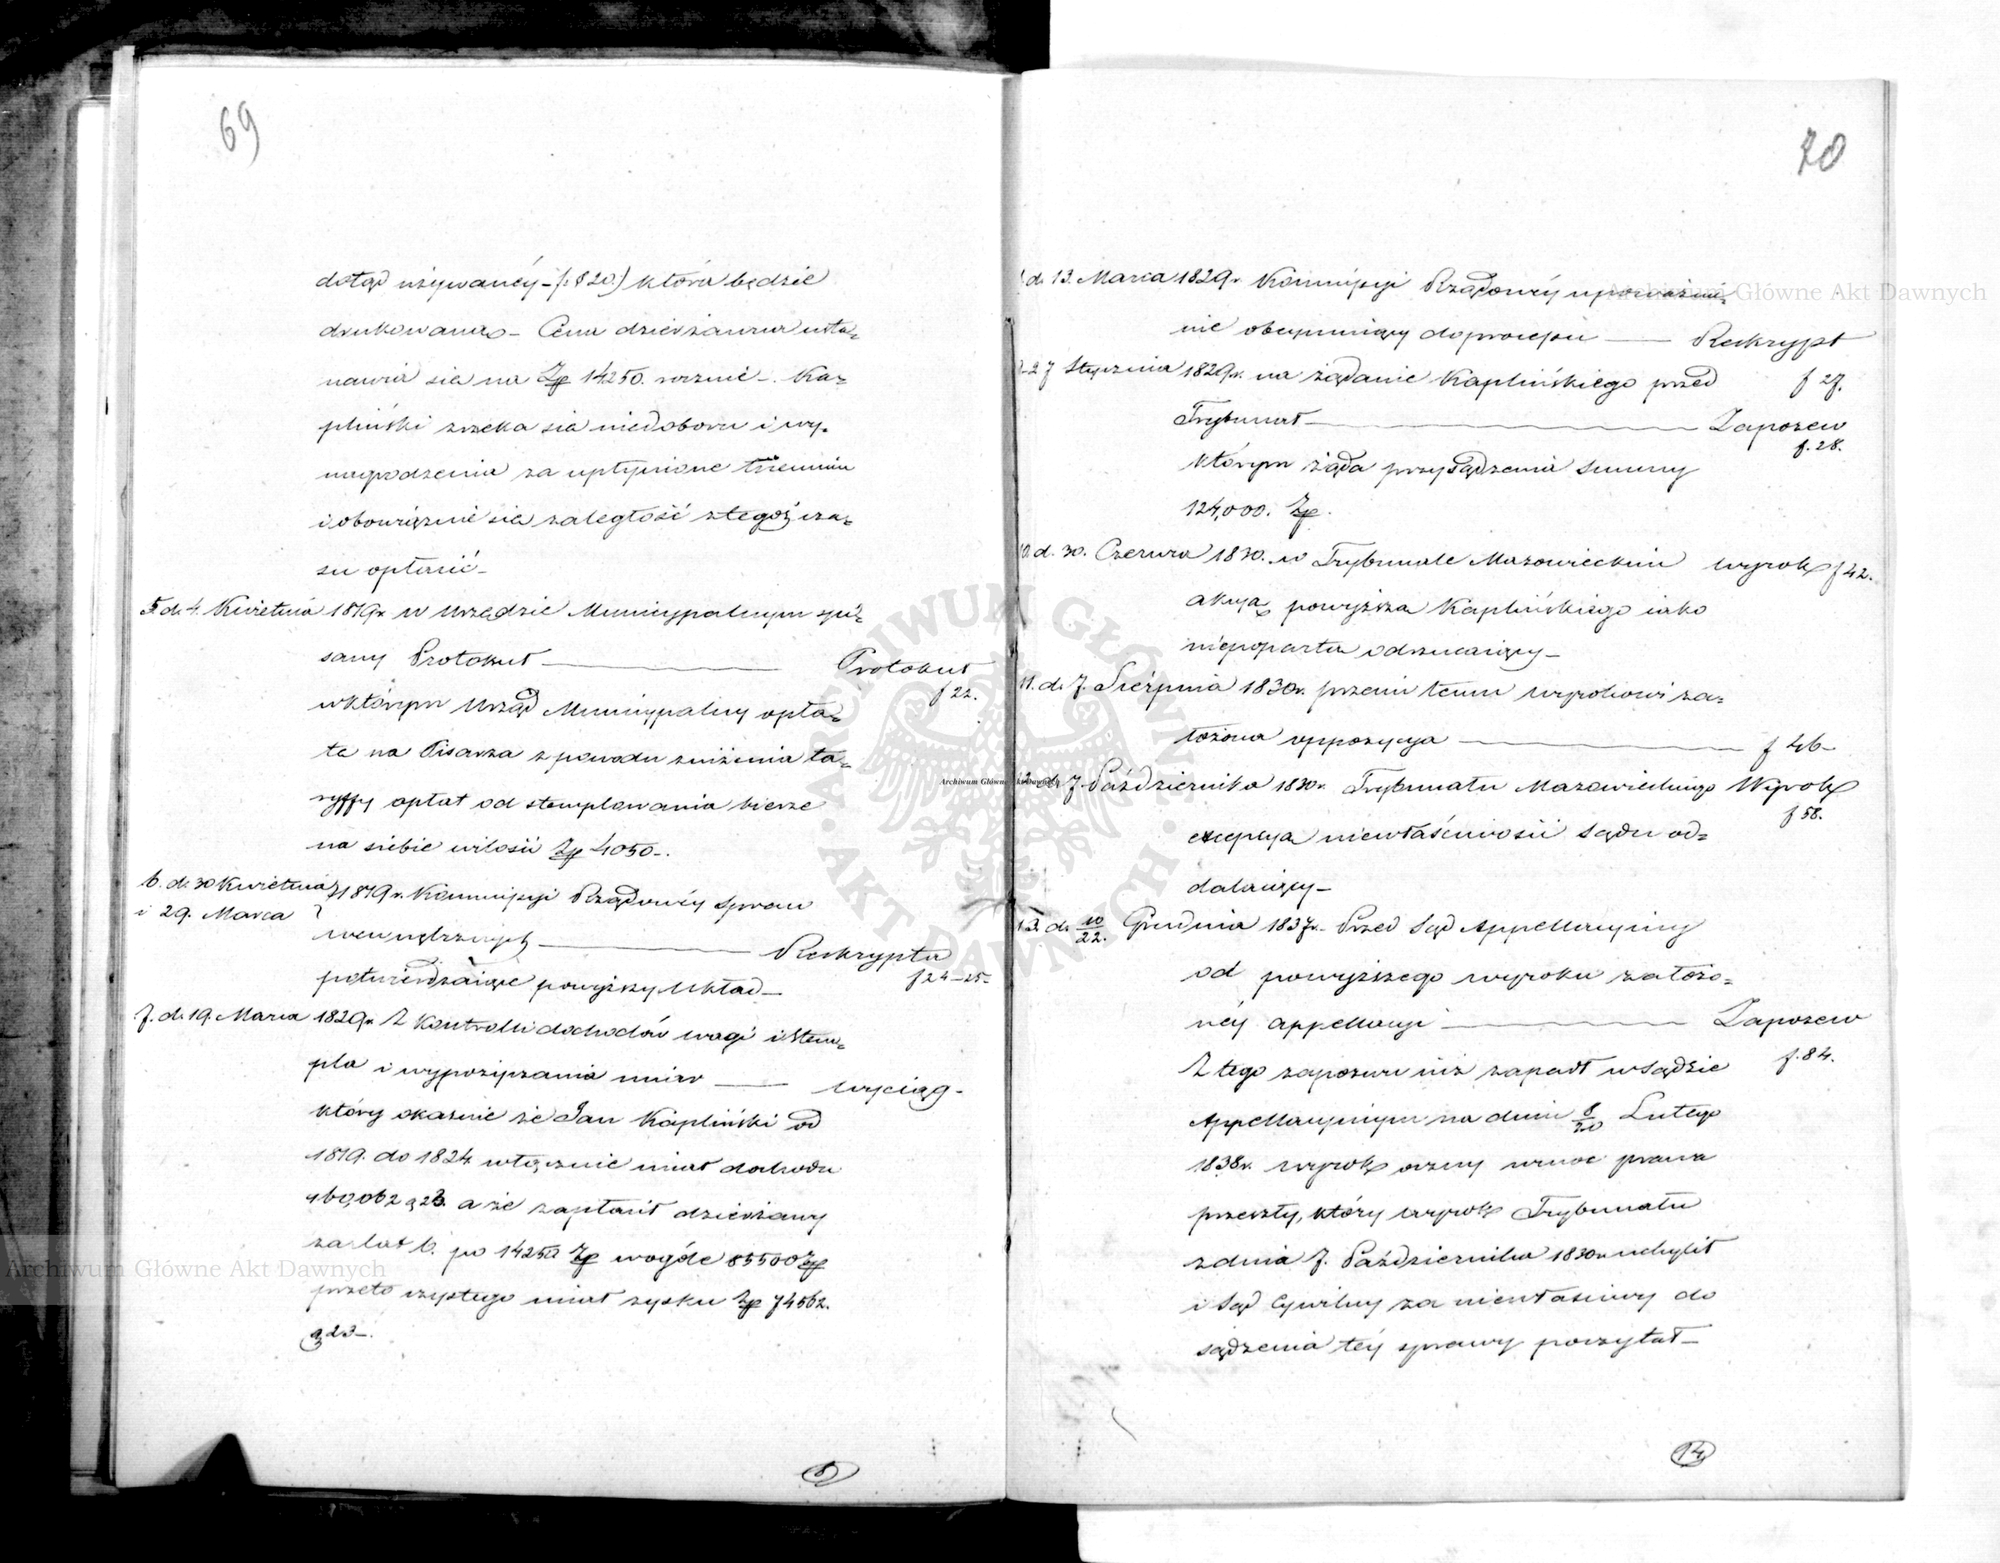 69
dotąd używanéy – (: § 20.) która będzie
drukowana – Cena dzierżawna usta=
nawia sie na Zp 14250. rocznie –. Ka=
pliński zrzeka sie niedoboru i wy=
nagrodzenia za upłynione triennium
i obowiązuie sie zaległość z tegoż cza=
su opłacić –
5. d. 4. Kwietnia 1819 r. w Urzędzie Municypalnym spi=
sany Protokuł — Protokuł
f 22.
w którym Urząd Municypalny opła=
tę na Pisarza z powodu zniżenia ta=
ryffy opłat od stemplowania bierze
na siebie w ilości Zp 4050 –.
6. d. 30 Kwietnia } 1819 r. Kommissyi Rządowéy Spraw
i 29. Marca
wewnętrznych — Reskrypta
f 24–25–
potwierdzaiące powyższy Układ –
7. d. 19. Marca 1829 r. Z Kontrolli dochodów wagi i stem=
pla i wypożyczania miar — Wyciąg –
który okazuie że Jan Kapliński od
1819. do 1824 włącznie miał dochodu
160,062 g 23. a że zapłacił dzierżawy
za lat 6. po 14250 Zp wogóle 85500 Zp
przeto czystego miał zysku Zp 74562.
g 23 –.
70
d. 13. Marca 1829 r. Kommissyi Rządowéy upoważnie=
nie obeymuiący do processu — Reskrypt
f 27.
27 Stycznia 1829 r. na żądanie Kaplińskiego przed
Trybunał — Zapozew
f. 28.
którym żąda przysądzenia Summy
124,000. Zp.
10. d. 30. Czerwca 1830. w Trybunale Mazowieckim Wyrok f 42.
akcyą powyższą Kaplińskiego iako
niepopartą odrzucaiący –
11. d. 7. Sierpnia 1830 r. przeciw temu wyrokowi za=
łożona oppozycya — f 46 –
12. d. 7. Października 1830 r. Trybunału Mazowieckiego Wyrok
f 58.
excepcya niewłaściwości Sądu od=
dalaiący –
13. d. 10/22. Grudnia 1837 r. Przed Sąd Appellacyiny
od powyższego wyroku założo=
néy appellacyi — Zapozew
f. 84.
Z tego zapozwu iuż zapadł w Sądzie
Appellacyinym na dniu 8/20 Lutego
1838 r. wyrok oczny w moc prawa
przeszły, który wyrok Trybunału
z dnia 7. Października 1830 r. uchylił
i Sąd Cywilny za niewłaściwy do
sądzenia téy sprawy poczytał –
14
Archiwum Główne Akt Dawnych
Archiwum Główne Akt Dawnych
Archiwum Główne Akt Dawnych
ARCHIWUM GŁÓWNE · AKT DAWNYCH ·